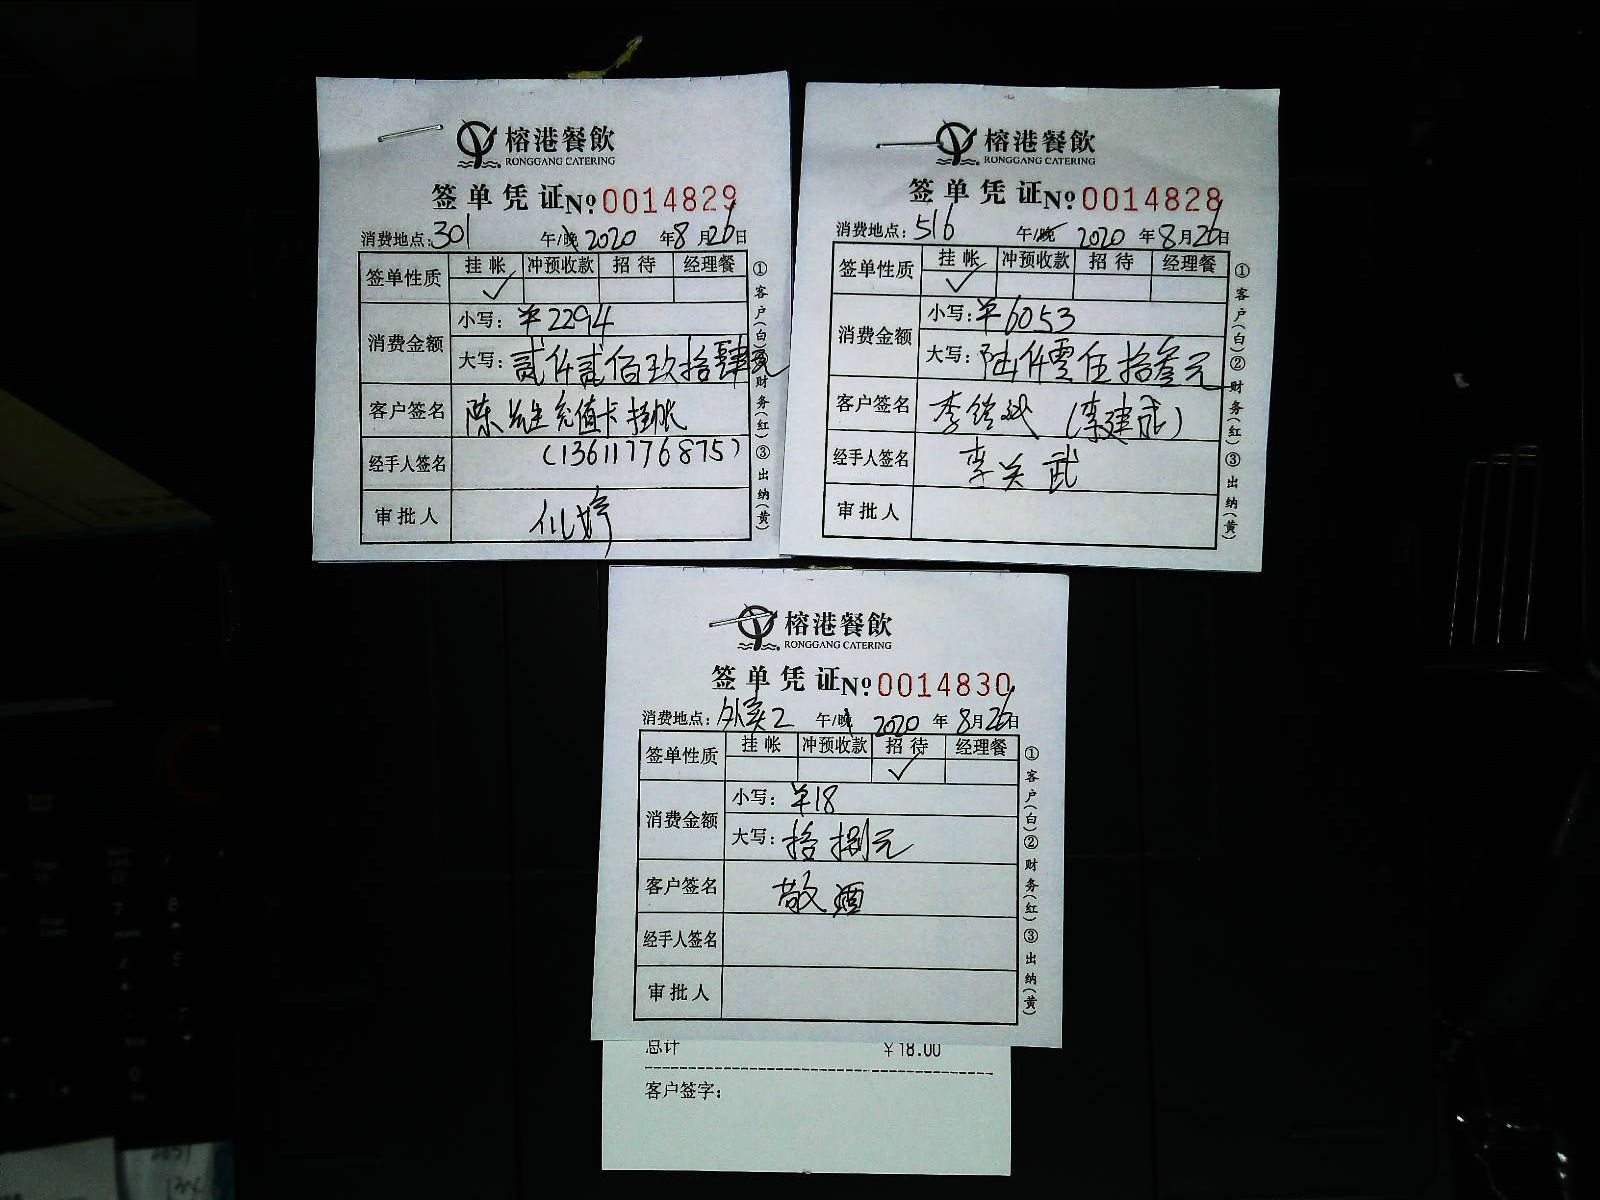 榕港餐飲
RONGGANG CATERING
签单凭证№0014829
消费地点:301 午/晚 2020 年8月26日
签单性质 挂帐 冲预收款 招待 经理餐
✓
消费金额
小写：¥2294
大写：贰仟贰佰玖拾肆元
客户签名 陈 充值卡挂帐
(13611776875)
经手人签名
审批人 婷
①客户(白)②财务(红)③出纳(黄)
榕港餐飲
RONGGANG CATERING
签单凭证№0014828
消费地点:516 午/晚 2020 年8月26日
签单性质 挂帐 冲预收款 招待 经理餐
✓
消费金额
小写:¥6053
大写：陆仟零伍拾叁元
客户签名 李 斌 (李建武)
经手人签名 李关武
审批人
①客户(白)②财务(红)③出纳(黄)
榕港餐飲
RONGGANG CATERING
签单凭证№0014830
消费地点：外卖2 午/晚 2020 年8月26日
签单性质 挂帐 冲预收款 招待 经理餐
✓
消费金额
小写：¥18
大写：拾捌元
客户签名 敬酒
经手人签名
审批人
①客户(白)②财务(红)③出纳(黄)
总计 ¥18.00
客户签字：